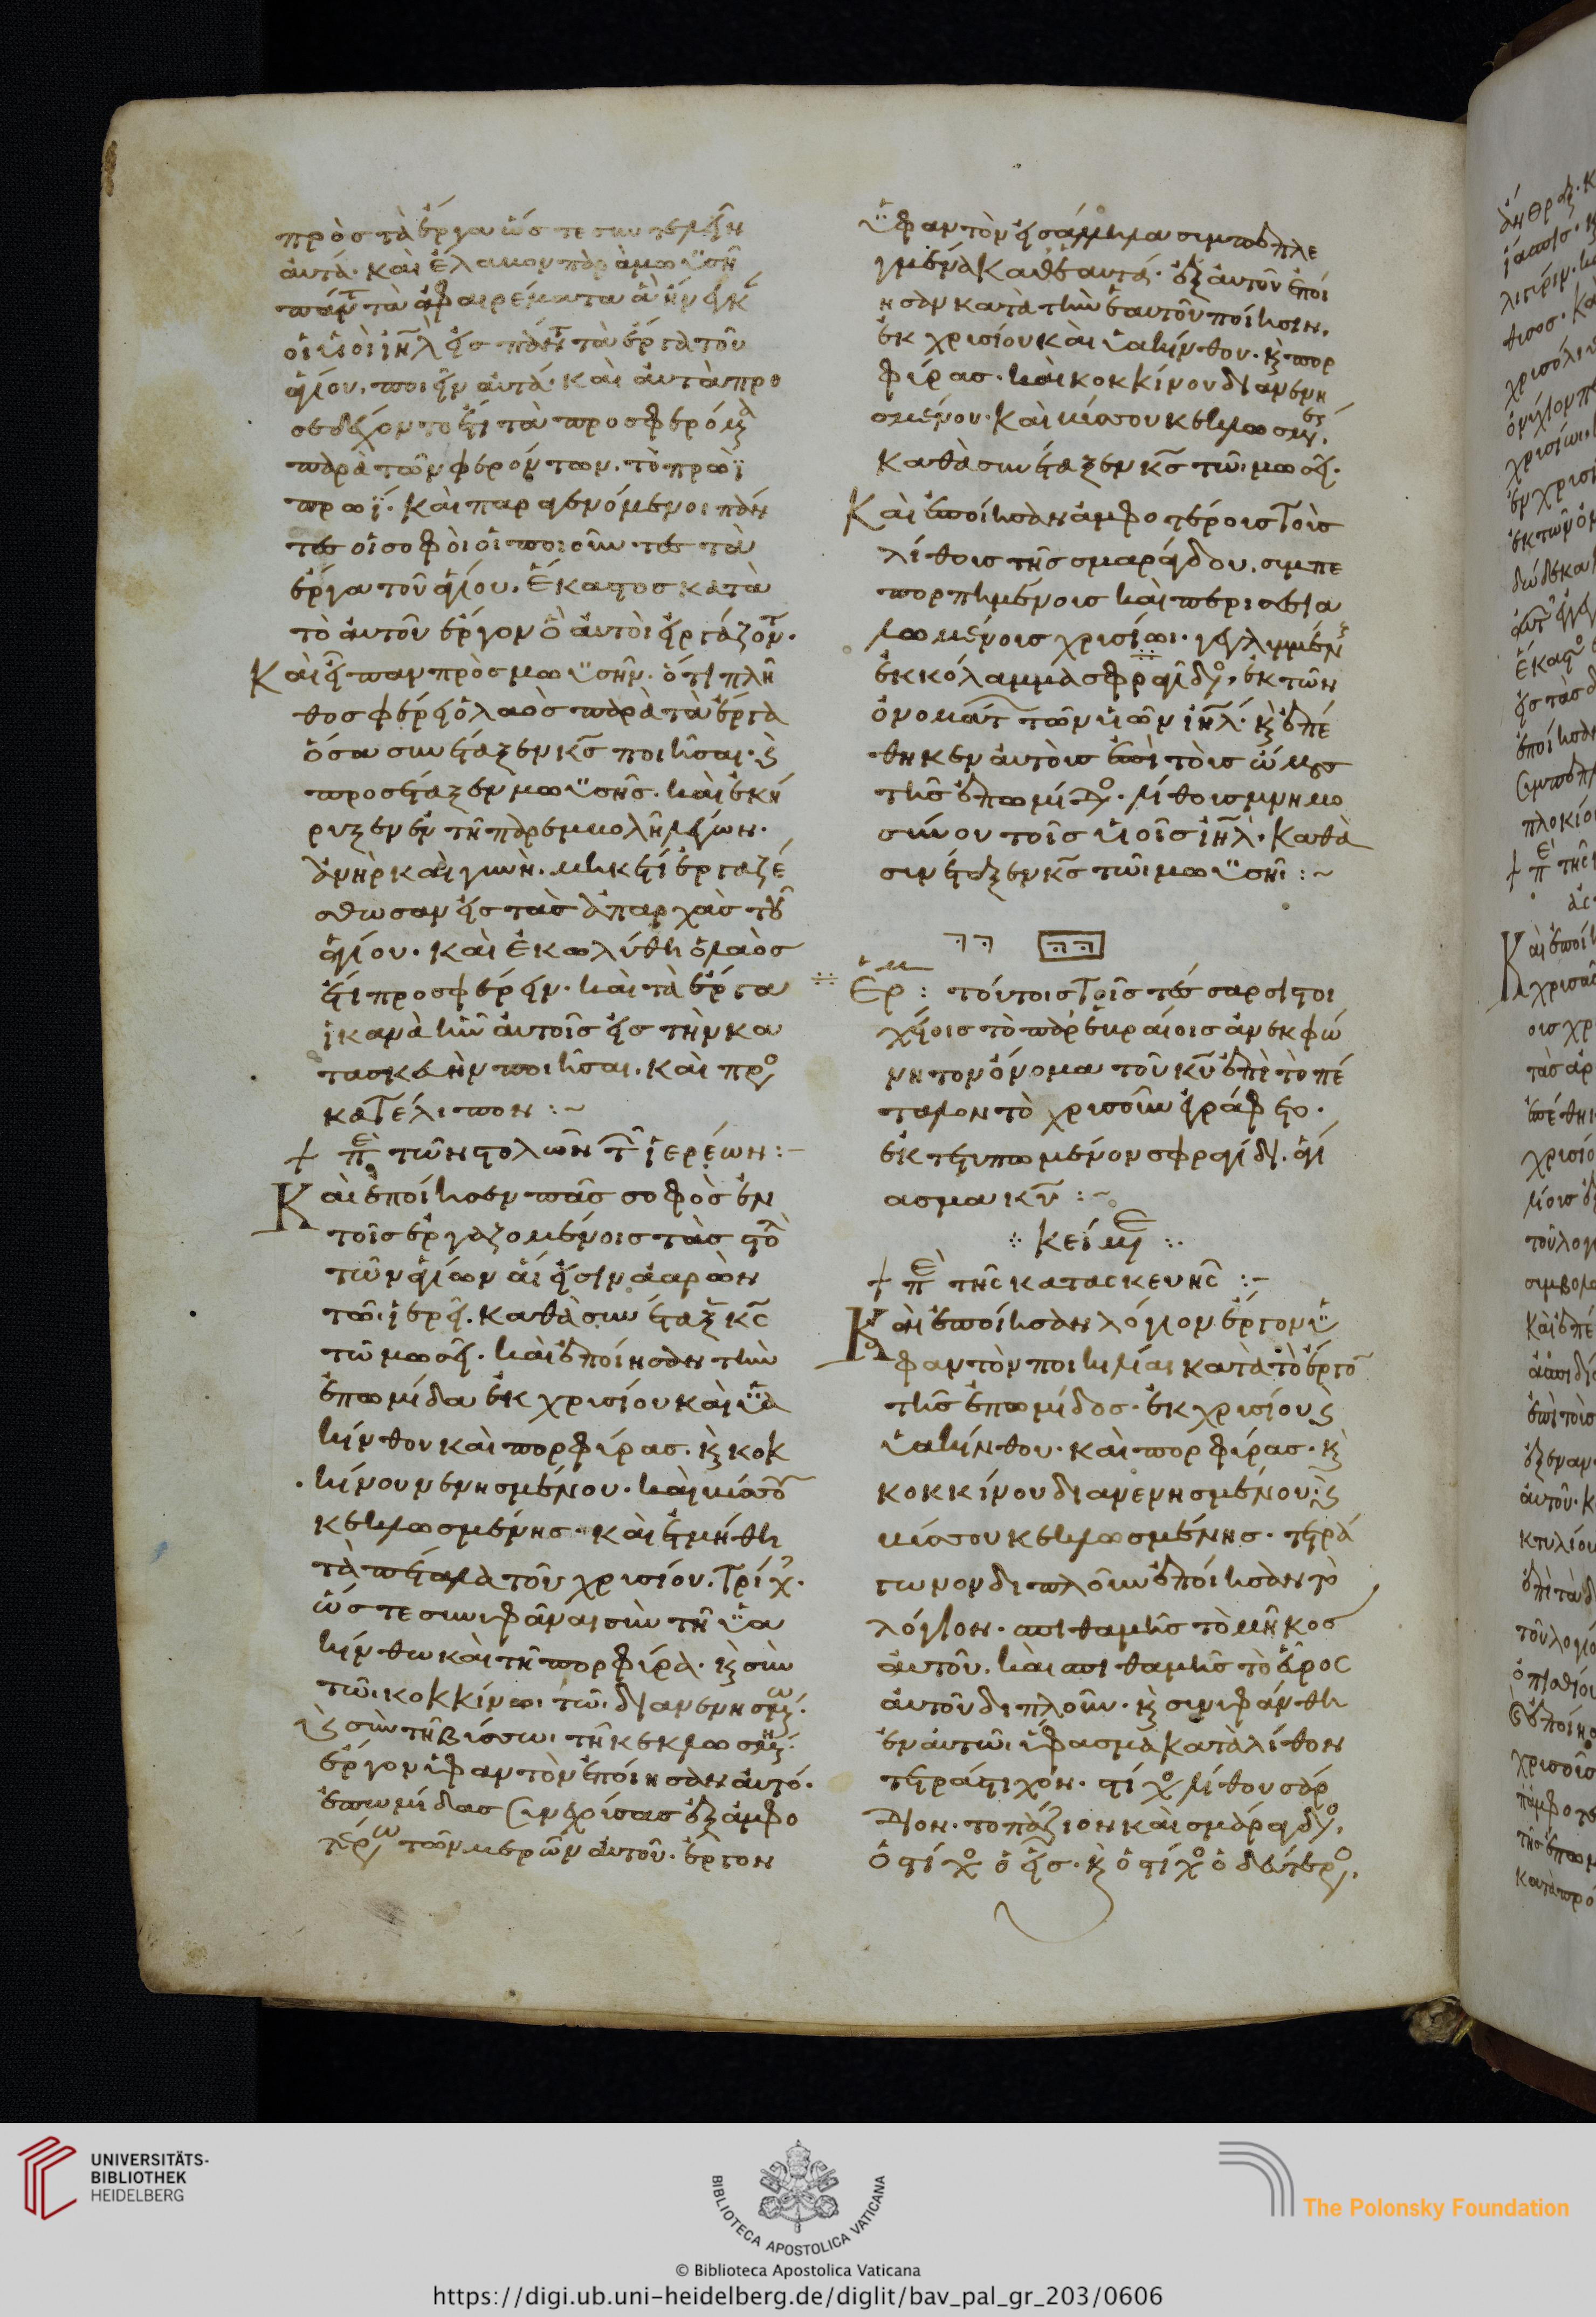 πρὸς τὰ ἔργα ὥστε συντελεῖν
αὐτά· καὶ ἔλαβον παρὰ μωϋσῆ
πάντα τὰ ἀφαιρέματα ἃ ἤνεγκ
οἱ υἱοὶ ιηλ εἰς πάντα τὰ ἔργα τοῦ
ἁγίου, ποιεῖν αὐτά· καὶ αὐτὰ προ
σεδέχοντο ἔτι τὰ προσφερόμενα
παρὰ τῶν φερόντων. τὸ πρωῒ
πρωΐ· καὶ παρεγένόμενοι πάν
τες οἱ σοφοὶ οἱ ποιοῦντες τὰ
ἔργα τοῦ ἁγίου. ἕκαστος κατὰ
τὸ αὐτοῦ ἔργον ὃ αὐτοὶ εἰργάζοντ·
Καὶ εἶπαν πρὸς μωϋσῆν· ὅτι πλῆ
θος φέρει ὁ λαὸς παρὰ τὰ ἔργα
ὅσα συνέταξεν κς ποιῆσαι· ϛ
προσέταξεν μωϋσῆς· καὶ ἐκή
ρυξεν ἐν τῆ παρεμβολῆ λέγων·
ἀνὴρ καὶ γυνὴ. μηκέτι ἐργαζέ
σθωσαν εἰς τὰς ἀπαρχὰς τοῦ
ἁγίου· καὶ ἐκωλύθη ὁ λαὸς
ἔτι προσφέρειν· καὶ τὰ ἔργα
ἱκανὰ ἦν αὐτοῖς εἰς τὴν κα
τασκευὴν ποιῆσαι, καὶ προς
κατέλιπον :~
+ πε τῶν στολῶν τῶν ἱερέων :-
Καὶ ἐποίησεν πᾶς σοφὸς ἐν
τοῖς ἐργαζομένοις τὰς στολὰς
τῶν ἁγίων αἵ εἰσιν ἀαρὼν
τῶι ἱερεῖ. καθὰ συνέταξεν κς
τῶ μωσεῖ. καὶ ἐποίησαν τὴν
ἐπωμίδα ἐκ χρυσίου καὶ ὑα
κίνθου καὶ πορφύρας. κ κοκ
κίνου νενησμένου. καὶ βύσσου
κεκλωσμένης· καὶ ἐτμήθη
τὰ πέταλα τοῦ χρυσίου. τρίχ.
ὥστε συνυφᾶναι σὺν τῆ ὑα
κίνθω καὶ τῆ πορφύρα. κ σὺν
τῶι κοκκίνωι τῶι διανενησμενω·
ϛ σὺν τῆ βύσσωι τῆ κεκλωσμενη·
ἔργον ὑφαντὸν ἐποίησαν αὐτό·
ἐπωμίδας συνεχούσας ἐξ ἀμφο
τέρων τῶν μερῶν αὐτοῦ. ἔργον
ὑφαντὸν εἰς ἄλληλα συμπεπλε
γμένα καθ' ἑαυτά. ἐξ αὐτοῦ ἐποί
ησαν κατὰ τὴν ἑαυτοῦ ποίησιν.
ἐκ χρυσίου καὶ ὑακίνθου. κ πορ
φύρας. καὶ κοκκίνου διανενη
σμένου· καὶ βύσσου κεκλωσμενης.
καθὰ συνέταξεν κς τῶι μωσεῖ.
Καὶ ἐποίησαν ἀμφοτέρους τοὺς
λίθους τῆς σμαράγδου, συμπε
πορπημένους καὶ περισεσια
λωμένους χρυσίωι· γεγλυμμένους
ἐκκόλαμμα σφραγῖδος, ἐκ τῶν
ὀνομάτων τῶν υἱῶν ιηλ· κ ἐπέ
θηκεν αὐτοὺς ἐπὶ τοὺς ὤμους
τῆς ἐπωμίδος. λίθους μνημο
σύνου τοῖς υἱοῖς ιηλ. καθὰ
συνέταξεν κς τῶι μωϋσῆι :~
הה הה
Ἑρμ : τούτοις τοῖς τέσσαρσι στοι
χείοις τὸ παρ ἑβραίοις ἀνεκφώ
νητον ὄνομα τοῦ κυ ἐπὶ τὸ πέ
ταλον τὸ χρυσοῦν ἐγράφετο.
ἐκτετυπωμένον σφραγίδι. ἁγί
ασμα κυ :~
∴ κείμε ∴
+ πε τῆς κατασκευῆς :-
Καὶ ἐποίησαν λόγιον ἔργον ὑ
φαντὸν ποικιλίαι κατὰ τὸ ἔργον
τῆς ἐπωμίδος. ἐκ χρυσίου ϛ
ὑακίνθου. καὶ πορφύρας. κ
κοκκίνου διανενησμένου. ϛ
βύσσου κεκλωσμένης. τετρά
γωνον διπλοῦν ἐποίησαν τὸ
λόγιον. σπιθαμῆς τὸ μῆκος
αὐτοῦ. καὶ σπιθαμῆς τὸ εὖρος
αὐτοῦ διπλοῦν. κ συνυφάνθη
ἐν αὐτῶι ὕφασμα κατάλιθον
τετράστιχον. στίχος λίθου σάρ
διον. τοπάζιον καὶ σμάραγδος.
ὁ στίχος ὁ εἷς. κ ὁ στίχος ὁ δεύτερος.
UNIVERSITÄTS-
BIBLIOTHEK
HEIDELBERG
BIBLIOTECA APOSTOLICA VATICANA
The Polonsky Foundation
© Biblioteca Apostolica Vaticana
https://digi.ub.uni-heidelberg.de/diglit/bav_pal_gr_203/0606